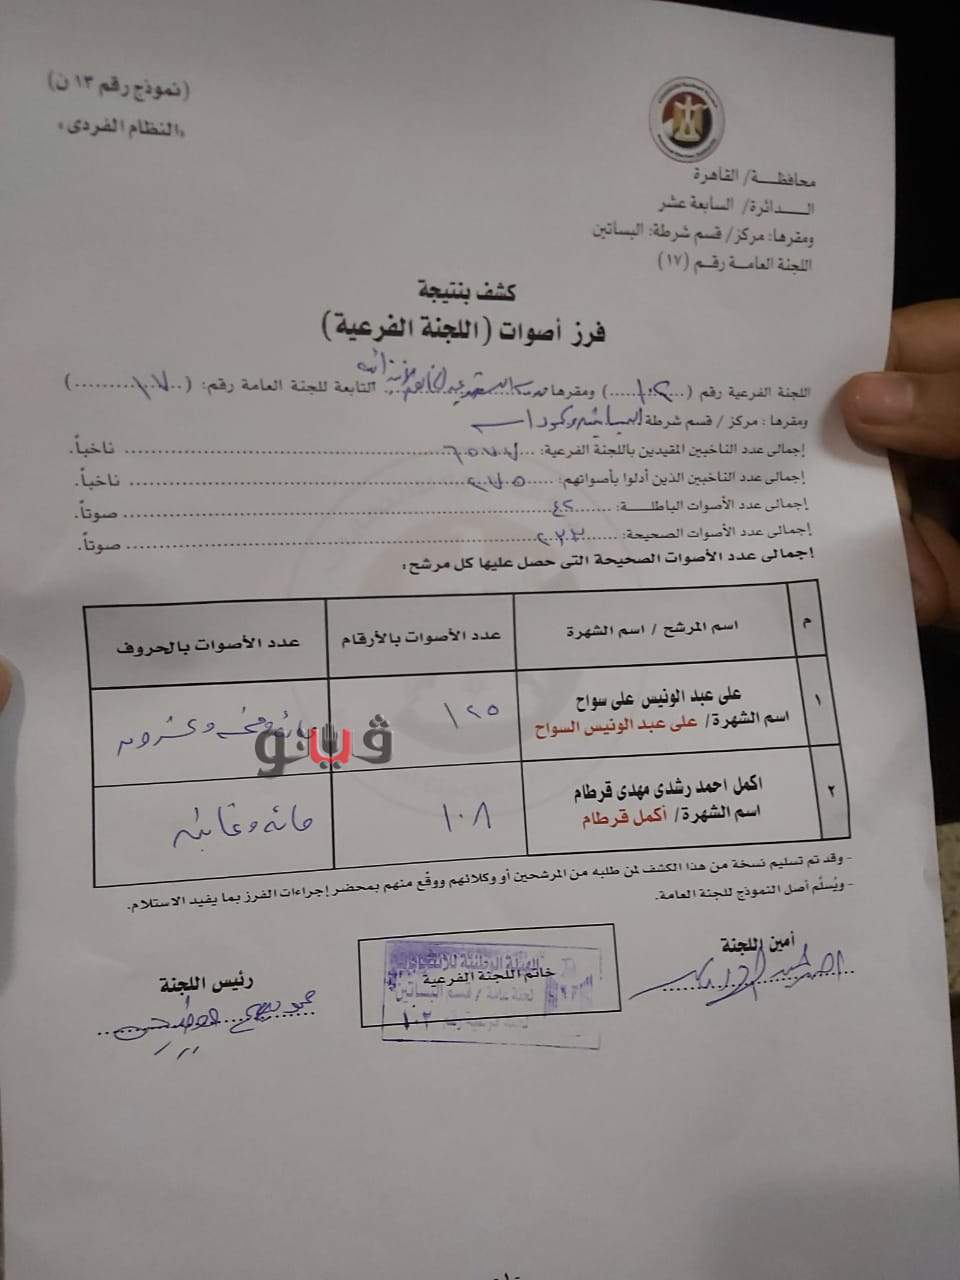 (نموذج رقم ١٣ ن)
«النظام الفردى»
محافظـــة/ القاهرة
الـــدائرة/ السابعة عشر
ومقرها: مركز/ قسم شرطة: البساتين
اللجنة العامة رقم (١٧)
كشف بنتيجة
فرز أصوات (اللجنة الفرعية)
اللجنة الفرعية رقم (١٠٢) ومقرها التابعة للجنة العامة رقم: (١٧)
ومقرها: مركز / قسم شرطة
إجمالى عدد الناخبين المقيدين باللجنة الفرعية: ناخباً.
إجمالى عدد الناخبين الذين أدلوا بأصواتهم: ناخباً.
إجمالى عدد الأصوات الباطلـــة: ٤٢ صوتاً.
إجمالى عدد الأصوات الصحيحة: ٢٣٣ صوتاً.
إجمالى عدد الأصوات الصحيحة التى حصل عليها كل مرشح:
م اسم المرشح / اسم الشهرة عدد الأصوات بالأرقام عدد الأصوات بالحروف
١ على عبد الونيس على سواح ١٢٥ مائة وخمسة وعشرون
اسم الشهرة/ على عبد الونيس السواح
ڤيتو
٢ اكمل احمد رشدى مهدى قرطام ١٠٨ مائة وثمانية
اسم الشهرة/ أكمل قرطام
- وقد تم تسليم نسخة من هذا الكشف لمن طلبه من المرشحين أو وكلائهم ووقّع منهم بمحضر إجراءات الفرز بما يفيد الاستلام.
- ويُسلّم أصل النموذج للجنة العامة.
أمين اللجنة
خاتم اللجنة الفرعية
رئيس اللجنة
الهيئة الوطنية للانتخابات
لجنة عامة / قسم البساتين
١٠٢
-١-